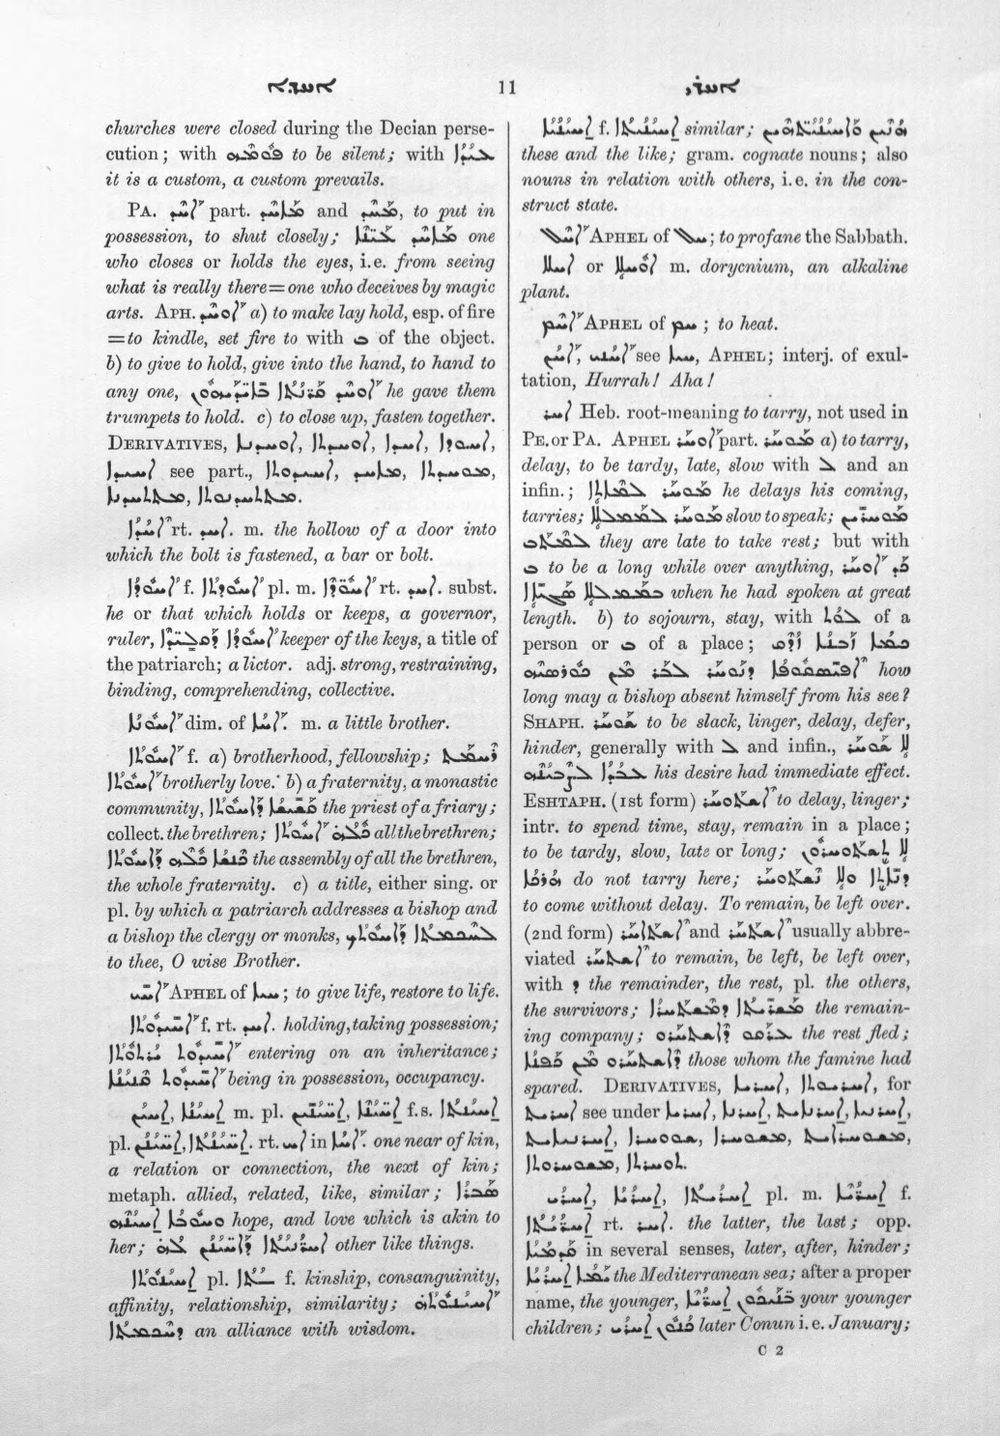 ܐܚܕܐ 11 ܐܚܪ
churches were closed during the Decian perse-
cution; with ܦܘܡܗ to be silent; with ܥܝܕܐ
it is a custom, a custom prevails.
PA. ܐܚܕ part. ܡܐܚܕ and ܡܚܕ, to put in
possession, to shut closely; ܡܐܚܕ ܥܝܢܐ one
who closes or holds the eyes, i.e. from seeing
what is really there=one who deceives by magic
arts. APH. ܐܘܚܕ a) to make lay hold, esp. of fire
=to kindle, set fire to with ܒ of the object.
b) to give to hold, give into the hand, to hand to
any one, ܐܘܚܕ ܩܪܢܬܐ ܒܐܝܕܝܗܘܢ he gave them
trumpets to hold. c) to close up, fasten together.
DERIVATIVES,
see part.,

rt. ܐܚܕ. m. the hollow of a door into
which the bolt is fastened, a bar or bolt.
ܐܚܘܕܐ f. ܐܚܘܕܬܐ pl. m. ܐܚܘܕܐ rt. ܐܚܕ. subst.
he or that which holds or keeps, a governor,
ruler, ܐܚܘܕܐ ܕܩܠܝܕܐ keeper of the keys, a title of
the patriarch; a lictor. adj. strong, restraining,
binding, comprehending, collective.
ܐܚܘܢܐ dim. of ܐܚܐ. m. a little brother.
ܐܚܘܬܐ f. a) brotherhood, fellowship; ܪܚܡܬ
ܐܚܘܬܐ brotherly love. b) a fraternity, a monastic
community, ܩܫܝܫܐ ܕܐܚܘܬܐ the priest of a friary;
collect. the brethren; ܟܠܗ ܐܚܘܬܐ all the brethren;
ܟܢܫܐ ܟܠܗ ܕܐܚܘܬܐ the assembly of all the brethren,
the whole fraternity. c) a title, either sing. or
pl. by which a patriarch addresses a bishop and
a bishop the clergy or monks, ܠܚܟܝܡܬܐ ܕܐܚܘܬܟ
to thee, O wise Brother.
ܐܚܝ APHEL of ܚܝܐ; to give life, restore to life.
ܐܚܝܕܘܬܐ f. rt. ܐܚܕ. holding, taking possession;
ܐܚܝܕܘܬ ܝܪܬܘܬܐ entering on an inheritance;
ܐܚܝܕܘܬ ܩܢܝܢܐ being in possession, occupancy.
ܐܚܝܢ, ܐܚܝܢܐ m. pl. ܐܚܝܢܝܢ, ܐܚܝܢܐ f.s. ܐܚܝܢܬܐ
pl. ܐܚܝܢܢ, ܐܚܝܢܬܐ. rt. ܐܚ in ܐܚܐ. one near of kin,
a relation or connection, the next of kin;
metaph. allied, related, like, similar; ܣܒܪܐ
ܘܚܘܒܐ ܐܚܝܢܗ hope, and love which is akin to
her; other like things.
ܐܚܝܢܘܬܐ pl. f. kinship, consanguinity,
affinity, relationship, similarity; ܐܚܝܢܘܬܐ
ܕܚܟܡܬܐ an alliance with wisdom.
ܐܚܝܢܝܐ f. ܐܚܝܢܝܬܐ similar;
these and the like; gram. cognate nouns; also
nouns in relation with others, i.e. in the con-
struct state.
ܐܚܠ APHEL of ܚܠ; to profane the Sabbath.
or m. dorycnium, an alkaline
plant.
ܐܚܡ APHEL of ܚܡ; to heat.
see APHEL; interj. of exul-
tation, Hurrah! Aha!
ܐܚܪ Heb. root-meaning to tarry, not used in
PE. or PA. APHEL ܐܘܚܪ part. ܡܘܚܪ a) to tarry,
delay, to be tardy, late, slow with ܠ and an
infin.; ܡܘܚܪ ܠܡܐܬܐ he delays his coming,
tarries; ܡܘܚܪ ܠܡܡܠܠܘ slow to speak; ܡܘܚܪܝܢ
they are late to take rest; but with
ܒ to be a long while over anything, ܟܕ ܐܘܚܪ
ܒܡܡܠܠܐ ܣܓܝܐܐ when he had spoken at great
length. b) to sojourn, stay, with ܠܘܬ of a
person or ܒ of a place; ܟܡܐ ܙܒܢܐ ܙܕܩ
ܠܐܦܝܣܩܘܦܐ ܕܢܘܚܪ ܠܒܪ ܡܢ ܟܘܪܣܝܗ how
long may a bishop absent himself from his see?
SHAPH. ܫܘܚܪ to be slack, linger, delay, defer,
hinder, generally with ܠ and infin., ܠܐ ܫܘܚܪ
ܠܥܒܕܐ ܠܨܒܝܢܗ his desire had immediate effect.
ESHTAPH. (1st form) ܐܫܬܘܚܪ to delay, linger;
intr. to spend time, stay, remain in a place;
to be tardy, slow, late or long; ܠܐ ܬܫܬܘܚܪܘܢ
ܗܪܟܐ do not tarry here; ܕܢܐܬܐ ܘܠܐ ܢܫܬܘܚܪ
to come without delay. To remain, be left over.
(2nd form) ܐܫܬܐܚܪ and ܐܫܬܚܪ usually abbre-
viated ܐܫܬܚܪ to remain, be left, be left over,
with ܕ the remainder, the rest, pl. the others,
the survivors; ܡܫܪܝܬܐ ܕܡܫܬܚܪܐ the remain-
ing company; ܕܐܫܬܚܪܘ ܥܪܩܘ the rest fled;
ܕܐܫܬܚܪܘ ܡܢ ܟܦܢܐ those whom the famine had
spared. DERIVATIVES, for
see under

pl. m. f.
rt. ܐܚܪ. the latter, the last; opp.
ܩܕܡܝܐ in several senses, later, after, hinder;
ܝܡܐ ܐܚܪܝܐ the Mediterranean sea; after a proper
name, the younger, ܒܢܝܟܘܢ ܐܚܪܝܐ your younger
children; ܟܢܘܢ ܐܚܪܝ later Conun i.e. January;
C 2